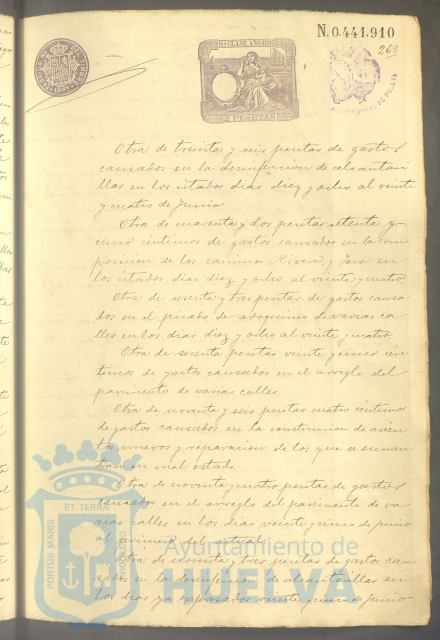 N.0.441.910
268
2 PESETAS
Otra de treinta y seis pesetas de gastos
causados en la desinfeccion de alcantari
llas en los citados dias diez y ocho al veinte
y cuatro de Junio
Otra de cuarenta y dos pesetas setenta y
cinco céntimos de gastos causados en la com
posicion de los caminos Rivera y Jara en
los citados dias diez y ocho al veinte y cuatro.
Otra de sesenta y tres pesetas de gastos causa
dos en el picado de adoquines de varias ca
lles en los dias diez y ocho al veinte y cuatro.
Otra de sesenta pesetas veinte y cinco cén
timos de gastos causados en el arreglo del
pavimento de varias calles.
Otra de noventa y seis pesetas cuatro céntimos
de gastos causados en la construccion de asien
y reparacion de los que se encuen
tran en mal estado.
Otra de noventa y cuatro pesetas de gastos
causados en el arreglo del pavimento de va
rias calles en los dias veinte y cinco de junio
al primero del actual.
Otra de noventa y tres pesetas de gastos cau
sados en la desinfeccion de alcantarillas en
los dias ya expresados veinte y cinco de Junio
PORTUS MARIS
ET TERRA
CUSTODIA
Ayuntamiento de
HUELVA